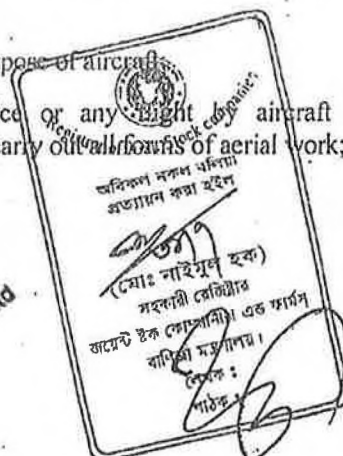 pose of aircraft;
ce or any flight by aircraft
carry out all forms of aerial work;
Stock Companies
অবিকল নকল বলিয়া
প্রত্যায়ন করা হইল
(মোঃ নাইমুল হক)
সহকারী রেজিষ্ট্রার
জয়েন্ট ষ্টক কোম্পানীজ এন্ড ফার্মস
বাণিজ্য মন্ত্রণালয়।
লেখক :
পাঠক :